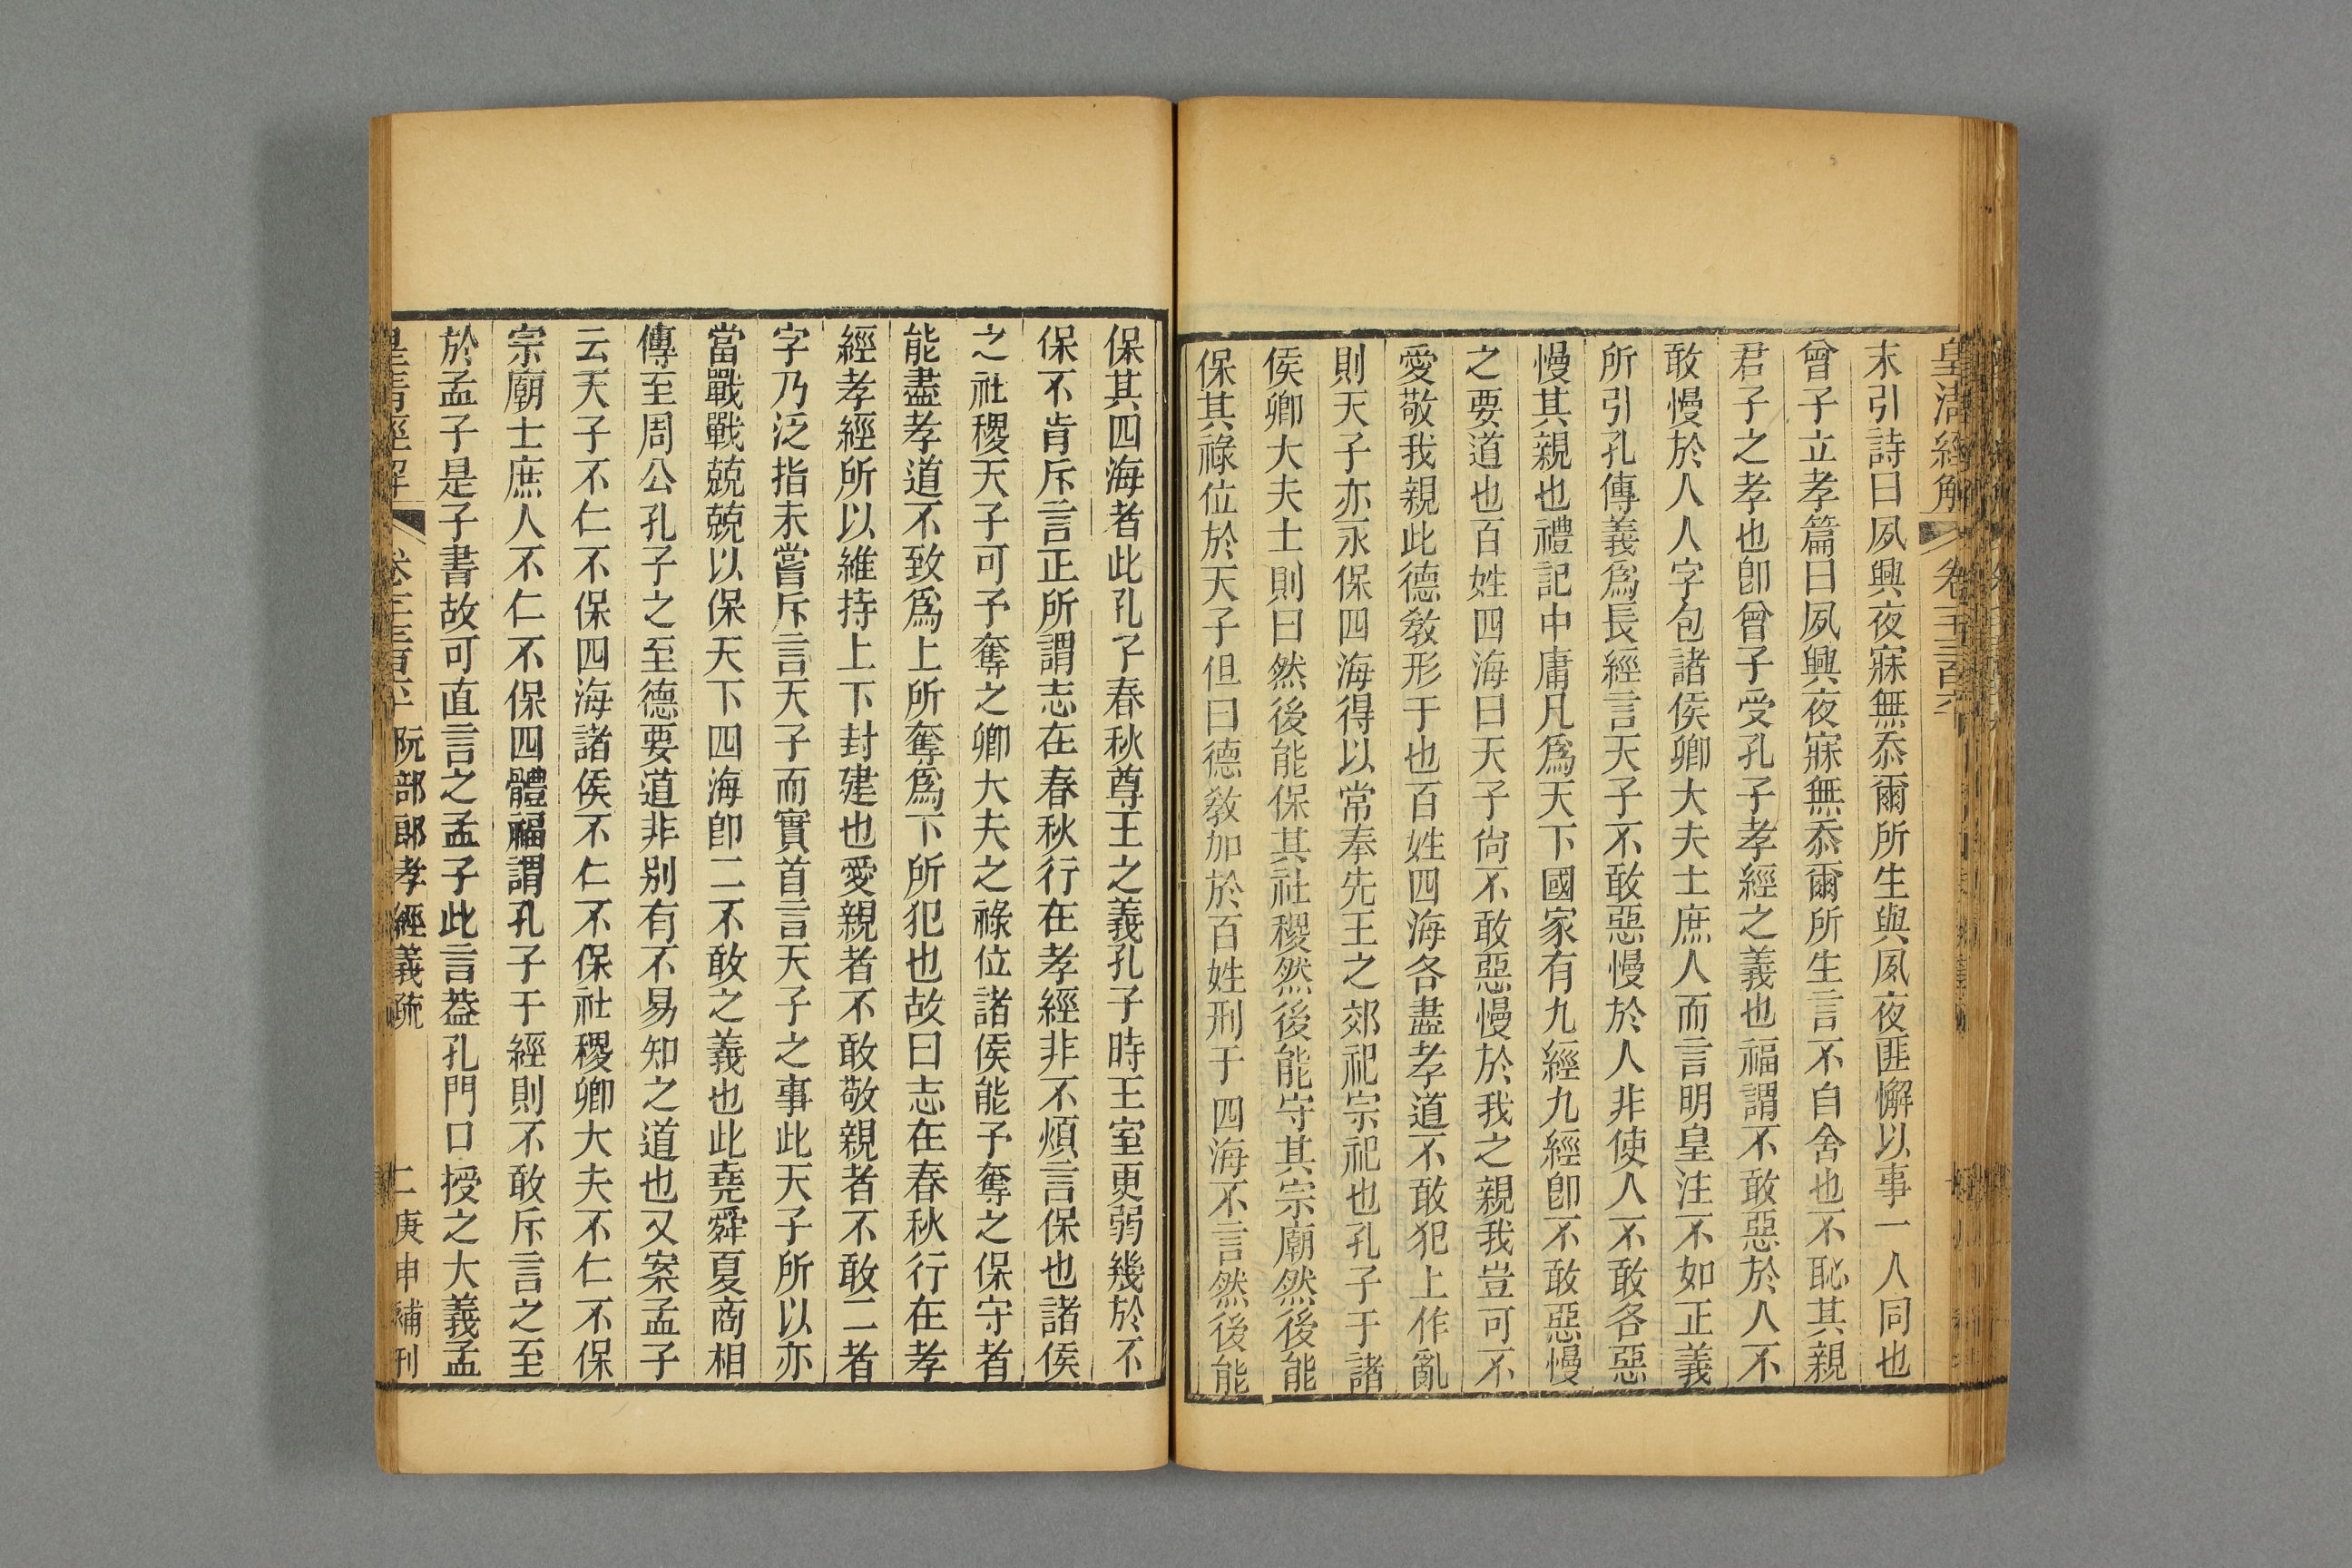 皇清經解
末引詩曰夙興夜寐無忝爾所生與夙夜匪懈以事一人同也
曾子立孝篇曰夙興夜寐無忝爾所生言不自舍也不恥其親
君子之孝也卽曾子受孔子孝經之義也福謂不敢惡於人不
敢慢於人人字包諸侯卿大夫士庶人而言明皇注不如正義
所引孔傳義爲長經言天子不敢惡慢於人非使人不敢各惡
慢其親也禮記中庸凡爲天下國家有九經九經卽不敢惡慢
之要道也百姓四海曰天子尙不敢惡慢於我之親我豈可不
愛敬我親此德敎形于也百姓四海各盡孝道不敢犯上作亂
則天子亦永保四海得以常奉先王之郊祀宗祀也孔子于諸
侯卿大夫士則曰然後能保其社稷然後能守其宗廟然後能
保其祿位於天子但曰德敎加於百姓刑于四海不言然後能
保其四海者此孔子春秋尊王之義孔子時王室更弱幾於不
保不肯斥言正所謂志在春秋行在孝經非不煩言保也諸侯
之社稷天子可予奪之卿大夫之祿位諸侯能予奪之保守者
能盡孝道不致爲上所奪爲下所犯也故曰志在春秋行在孝
經孝經所以維持上下封建也愛親者不敢敬親者不敢二者
字乃泛指未嘗斥言天子而實首言天子之事此天子所以亦
當戰戰兢兢以保天下四海卽二不敢之義也此堯舜夏商相
傳至周公孔子之至德要道非別有不易知之道也又案孟子
云天子不仁不保四海諸侯不仁不保社稷卿大夫不仁不保
宗廟士庶人不仁不保四體福謂孔子于經則不敢斥言之至
於孟子是子書故可直言之孟子此言葢孔門口授之大義孟
皇清經解 阮部郎孝經義疏 二 庚申補刊